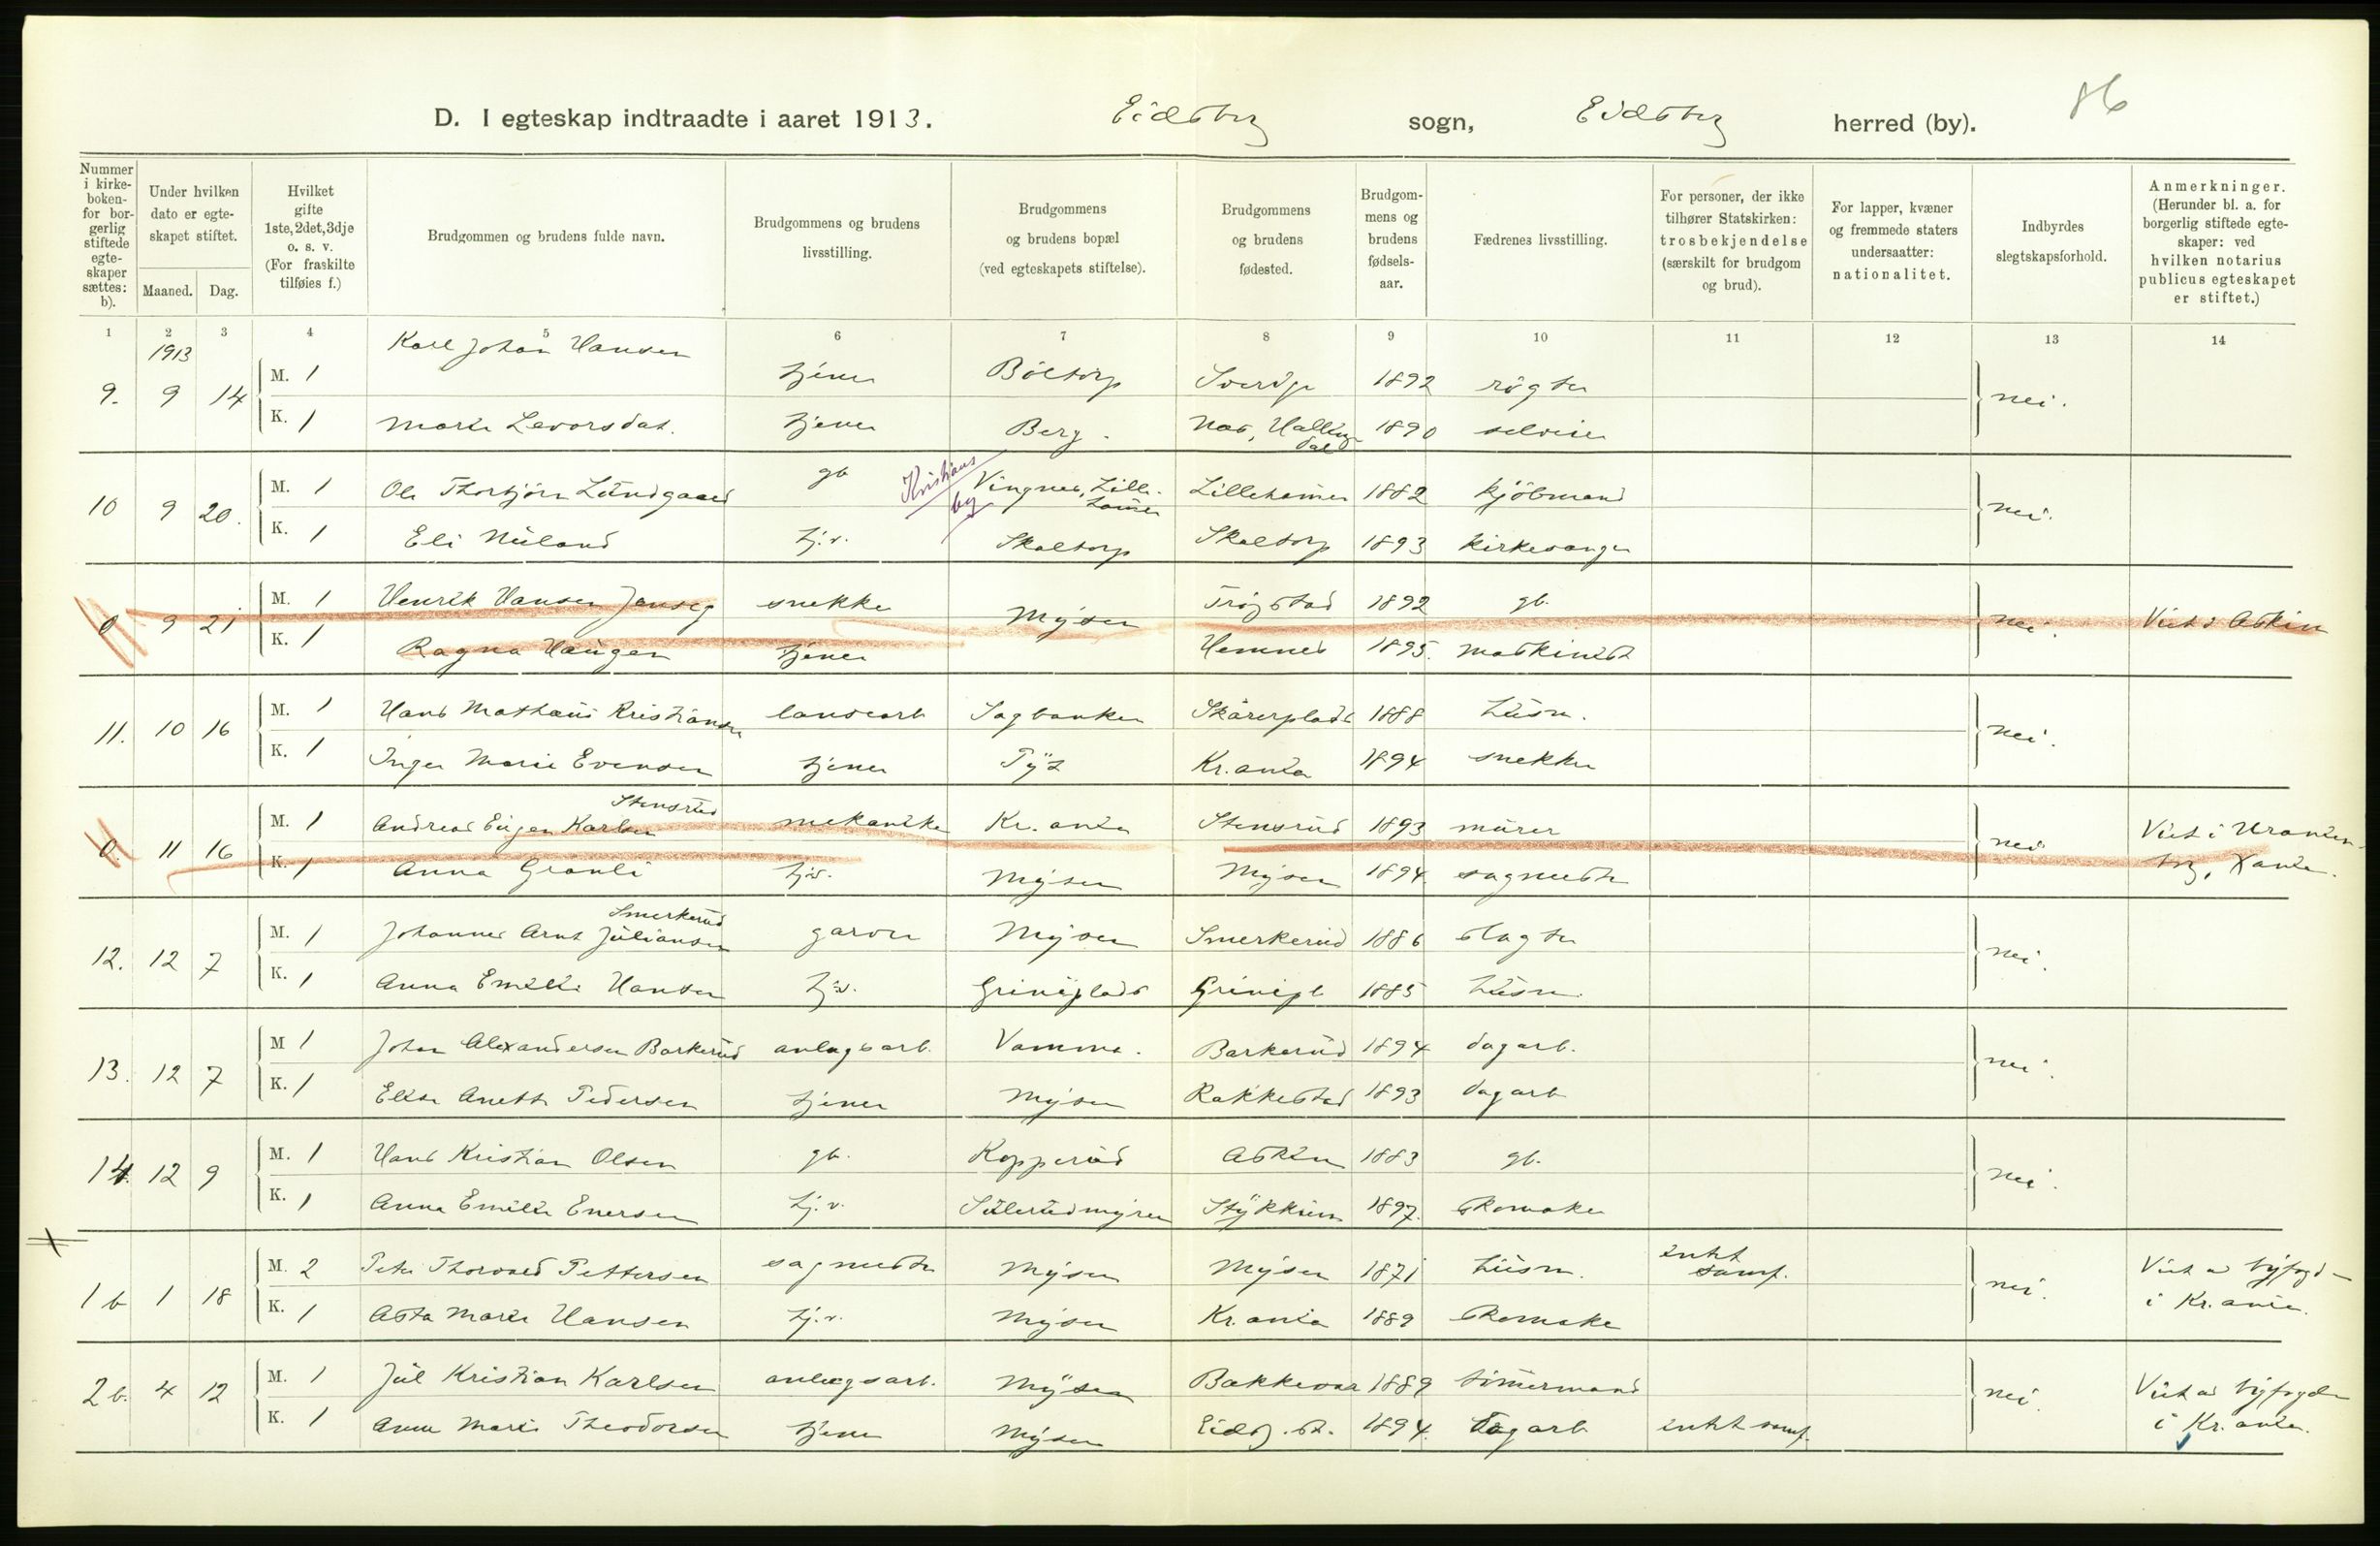 86
D. I egteskap indtraadte i aaret 1913. Eidsberg sogn, Eidsberg herred (by).
Nummer i kirke-boken- for bor-gerlig stiftede egte-skaper sættes: b).
Under hvilken dato er egte-skapet stiftet.
Maaned. Dag.
Hvilket gifte 1ste, 2det, 3dje o. s. v. (For fraskilte tilføies f.)
Brudgommen og brudens fulde navn.
Brudgommens og brudens livsstilling.
Brudgommens og brudens bopæl (ved egteskapets stiftelse).
Brudgommens og brudens fødested.
Brudgom-mens og brudens fødsels-aar.
Fædrenes livsstilling.
For personer, der ikke tilhører Statskirken: trosbekjendelse (særskilt for brudgom og brud).
For lapper, kvæner og fremmede staters undersaatter: nationalitet.
Indbyrdes slegtskapsforhold.
Anmerkninger. (Herunder bl. a. for borgerlig stiftede egte-skaper: ved hvilken notarius publicus egteskapet er stiftet.)
1 2 3 4 5 6 7 8 9 10 11 12 13 14
1913
9. 9 14 M. 1 Karl Johan Hansen tjener Böltorp Sverige 1892 rögter nei.
K. 1 Marie Levorsdat. tjener Berg. Nes, Hallingdal 1890 selveier
10 9 20. M. 1 Ole Thorbjörn Lundgaard gb Kristians by Vingnes, Lillehamer Lillehamer 1882 kjöbmand nei.
K. 1 Eli Nüland tj.v. Skaltorp Skaltorp 1893 kirkesanger
0 9 21 M. 1 Henrik Hansen snekker Mysen Trögstad 1892 gb. nei. Viet i Askim
K. 1 Ragna Haugen tjener Hemnes 1895. maskinist
11. 10 16 M. 1 Hans Mathäus Kristiansen landearb Sagbanken Skårerplads 1888 Husm. nei.
K. 1 Inger Marie Evensen tjener Kr.ania 1894 snekker
0. 11 16 M. 1 Andreas Eugen Karlsen Stensrud mekaniker Kr.ania Stensrud 1893 murer nei Viet i Uranienbg, Xania.
K. 1 Anna Grönli tj.v. Mysen Mysen 1894. sagmester
12. 12 7 M. 1 Johannes Arnt Juliansen Smerkerud garver Mysen Smerkerud 1886 slagter nei.
K. 1 Anna Emilie Hansen tj.v. Griniplads Grinipl 1885 Husm.
13. 12 7 M 1 Johan Alexandersen Barkerud anlegsarb. Vamma. Barkerud 1894 dagarb. nei.
K. 1 Elise Anette Pedersen tjener Mysen Rakkestad 1893 dagarb
14. 12 9 M. 1 Hans Kristian Olsen gb. Kopperud Askim 1883 gb. nei.
K. 1 Anna Emilie Enersen tj.v. Sulerudmyren Stykkum 1897. skomaker
1 b 1 18 M. 2 Peter Thorvald Pettersen sagmester Mysen Mysen 1871 Husm. intet samf. nei. Viet av byfogd i Kr.ania.
K. 1 Asta Marie Hansen tj.v. Mysen Kr.ania 1889 skomaker
2 b. 4 12 M. 1 Jul Kristian Karlsen anlegsarb. Mysen Bakkevar 1889 timermand nei. Viet av byfogden i Kr.ania.
K. 1 Anne Marie Theodorsen tjener Mysen Eidsb. st. 1894. Dagarb intet samf.